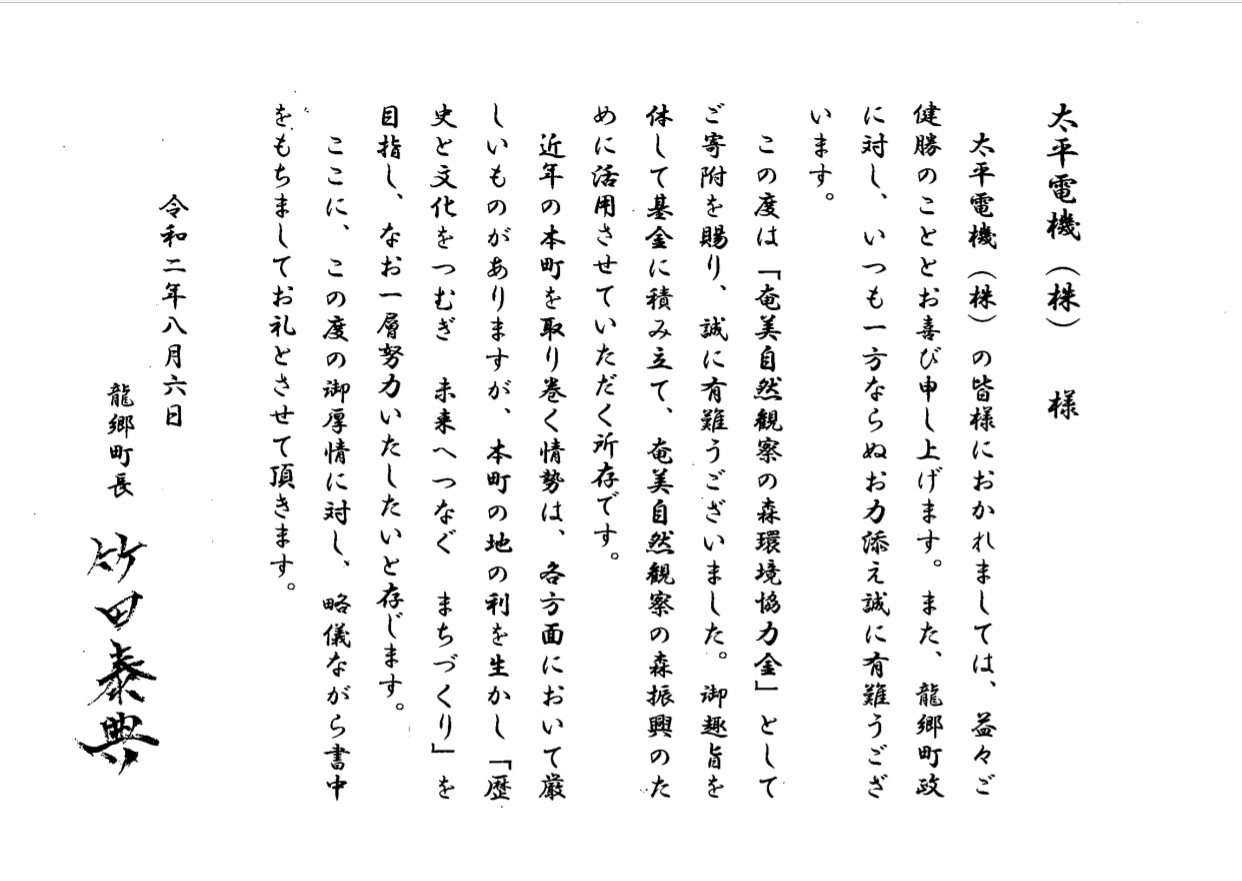 太平電機（株）　様
　太平電機（株）の皆様におかれましては、益々ご
健勝のこととお喜び申し上げます。また、龍郷町政
に対し、いつも一方ならぬお力添え誠に有難うござ
います。
　この度は「奄美自然観察の森環境協力金」として
ご寄附を賜り、誠に有難うございました。御趣旨を
体して基金に積み立て、奄美自然観察の森振興のた
めに活用させていただく所存です。
　近年の本町を取り巻く情勢は、各方面において厳
しいものがありますが、本町の地の利を生かし「歴
史と文化をつむぎ　未来へつなぐ　まちづくり」を
目指し、なお一層努力いたしたいと存じます。
　ここに、この度の御厚情に対し、略儀ながら書中
をもちましてお礼とさせて頂きます。
令和二年八月六日
龍郷町長　竹田泰典